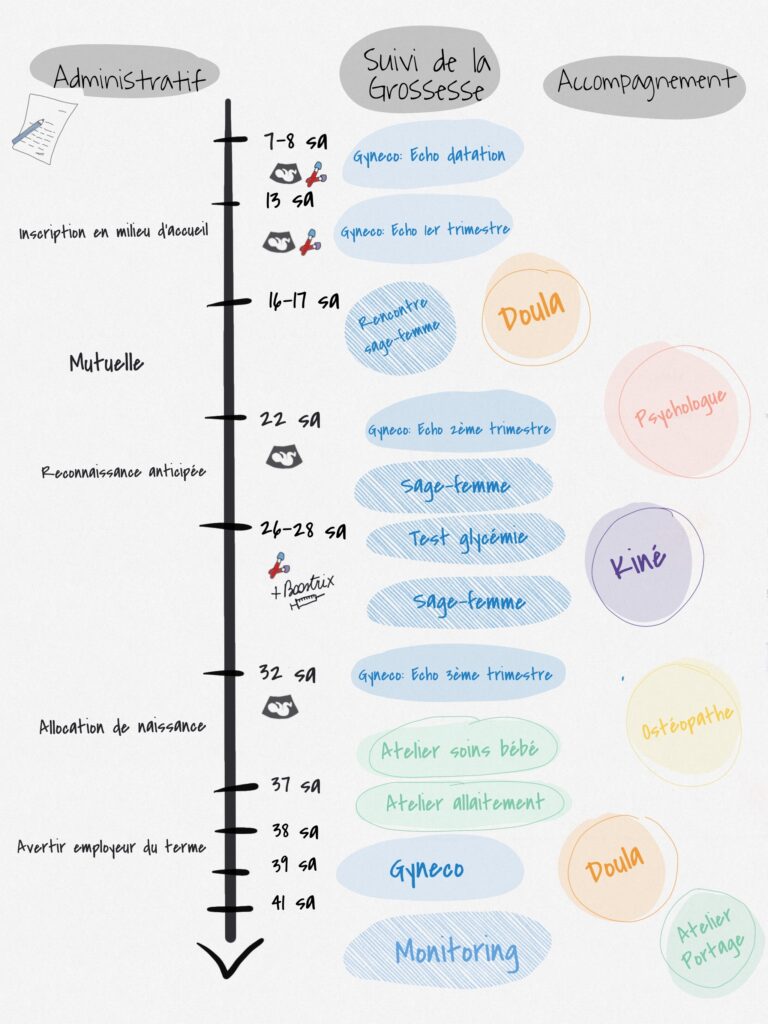 Administratif
Suivi de la
Grossesse
Accompagnement
7-8 sa
Gyneco: Echo datation
13 sa
Inscription en milieu d'accueil
Gyneco: Echo 1er trimestre
16-17 sa
Rencontre
sage-femme
Doula
Mutuelle
Psychologue
22 sa
Gyneco: Echo 2ème trimestre
Reconnaissance anticipée
Sage-femme
26-28 sa
Test glycémie
Kiné
+Boostrix
Sage-femme
32 sa
Gyneco: Echo 3ème trimestre
Ostéopathe
Allocation de naissance
Atelier soins bébé
37 sa
Atelier allaitement
38 sa
Avertir employeur du terme
39 sa
Gyneco
Doula
41 sa
Atelier
Portage
Monitoring